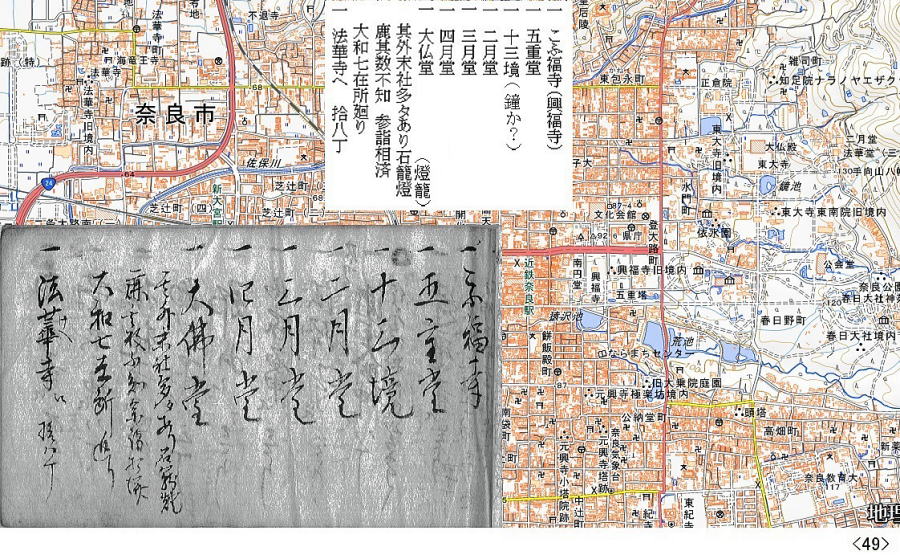 一 こふ福寺(興福寺)
一 五重堂
一 十三境(鐘か?)
一 二月堂
一 三月堂
一 四月堂
一 大仏堂
其外末社多々あり石籠燈(燈籠)
鹿其数不知 参詣相済
大和七在所廻り
一 法華寺へ 拾八丁
一 こふ福寺
一 五重堂
一 十三境
一 二月堂
一 三月堂
一 四月堂
一 大佛堂
其外末社多々あり石籠燈
鹿其数不知参詣相済
大和七在所廻り
一 法華寺へ 拾八丁
奈良市
不退寺
法華寺町
海龍王寺
法華寺
法華寺旧境内
佐保川
芝辻町
芝辻町
新大宮駅
24
64
68
68
東包永町
正倉院
雑司町
知足院ナラノヤエザクラ
東大寺旧境内
大仏殿
東大寺
二月堂
法華堂(三
手向山八幡
鏡池
東大寺東南院旧境内
水門町
依水園
文化会館
県庁
登大路町
近鉄奈良駅
南円堂
興福寺
興福寺旧境内
五重塔
猿沢池
荒池
公会堂
奈良公園
春日大社
春日野町
春日大社境内
餅飯殿町
ならまちセンター
旧大乗院庭園
元興寺極楽坊境内
公納堂町
頭塔
高畑町
奈良気象台
元興寺塔跡
元興寺小塔院跡
中辻町
東紀寺
奈良教育大
地理
<49>